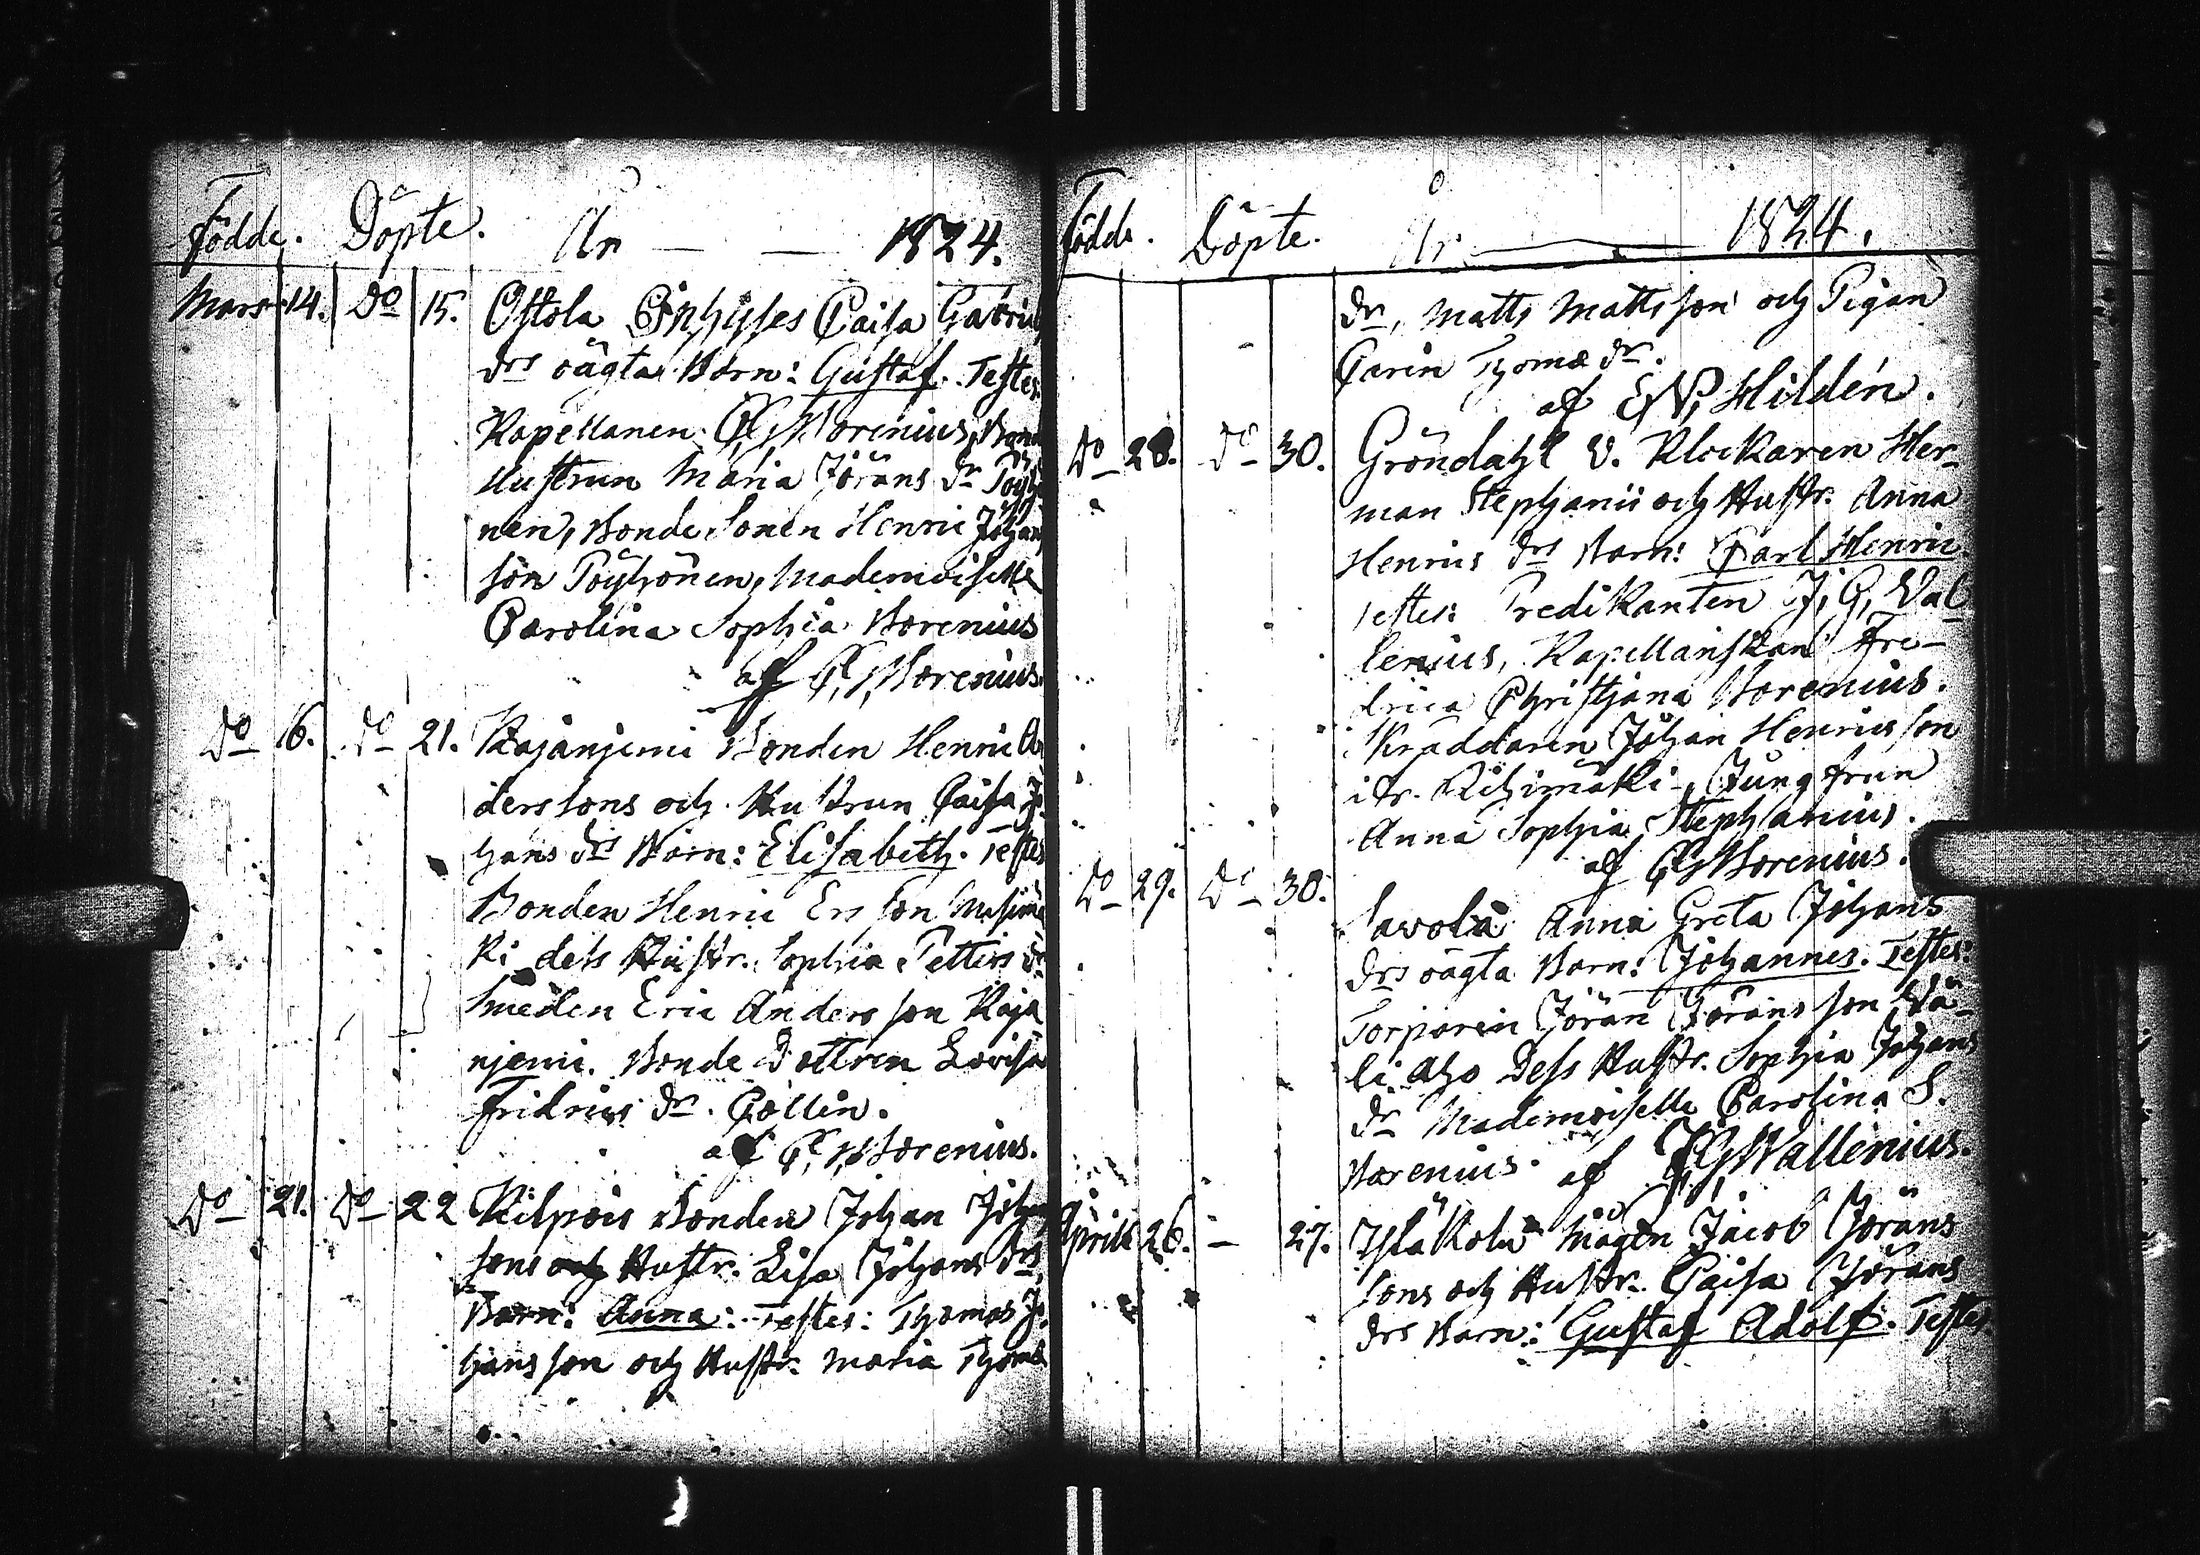 Födde. Döpte. År — — 1824.
Mars 14. Do 15. Ostola Inhyses Caisa Gabriels
drs oägta Barn: Gustaf. Testes:
Kapellanen C, G, Borenius, Bonde
Hustrun Maria Jörans dr Pöyhö
nen, Bonde Sonen Henric Johans
son Pöyhönen, Mademoiselle
Carolina Sophia Borenius
af C, G, Borenius.
Do 16. Do 21. Kajanjemi Bonden Henric An
derssons och Hustrun Caisa Jo
hans drs Barn: Elisabeth. Testes
Bonden Henric Ers son
ki dess Hustr. Sophia Petters dr
Smeden Eric Anders son Kaja
njemi. Bonde Dottren Lovisa
Fridrics dr. Collin.
af C, G, Borenius.
Do 21. Do 22 Kilpois Bonden Johan Johans
sons och Hustr. Lisa Johans drs,
Barn: Anna: Testes: Thomas Jo
hans son och Hustr. Maria Thomæ
Födde. Döpte. År — 1824.
dr, Matts Matts son och Pigan
Carin Thomæ dr.
af E, N, Hildén.
Do 28. Do 30. Gröndahl V. Klockaren Her-
man Stephanii och Hustr. Anna
Henrics drs Barn: Carl Henric
Testes: Predikanten J, G, Wal
lenius, Kapellanskan Fre-
drica Christjana Borenius.
Skräddaren Johan Henrics son
ifr. Riihimäki, Jungfrun
Anna Sophia Stephanius.
af C G Borenius.
Do 29. Do 30. Savola Anna Greta Johans
drs oägta Barn: Johannes. Testes:
Torparen Jöran Jörans son Wä-
li Aho Dess Hustr. Sophia Johans
dr Mademoiselle Carolina S.
Borenius. af J, G, Wallenius.
Aprill 26. — 27. Mågen Jacob Jörans
sons och Hustr. Caisa Jörans
drs Barn: Gustaf Adolf. Testes